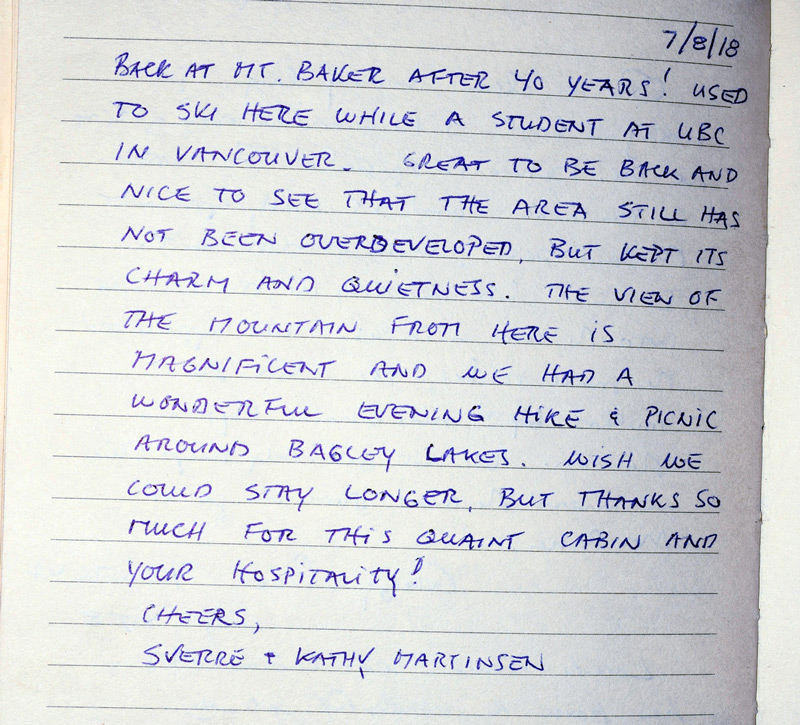 7/8/18
BACK AT MT. BAKER AFTER 40 YEARS! USED
TO SKI HERE WHILE A STUDENT AT UBC
IN VANCOUVER. GREAT TO BE BACK AND
NICE TO SEE THAT THE AREA STILL HAS
NOT BEEN OVERDEVELOPED, BUT KEPT ITS
CHARM AND QUIETNESS. THE VIEW OF
THE MOUNTAIN FROM HERE IS
MAGNIFICENT AND WE HAD A
WONDERFUL EVENING HIKE & PICNIC
AROUND BAGLEY LAKES. WISH WE
COULD STAY LONGER, BUT THANKS SO
MUCH FOR THIS QUAINT CABIN AND
YOUR HOSPITALITY!
CHEERS,
SVERRE + KATHY MARTINSEN